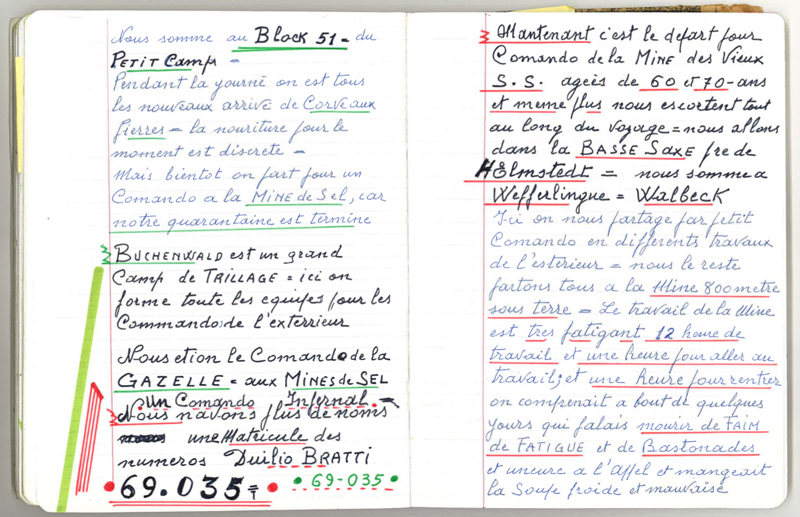 Nous somme au Block 51 - du
PETIT Camp -
Pendant la journé on est tous
les nouveaux arrivé de CORVEAUX
Pierres = la nouriture pour le
moment est discrete -
Mais bientot on part pour un
Comando a la MINE de SEL, car
notre quarantaine est terminé
BUCHENWALD est un grand
Camp de TRILLAGE = ici on
forme toute les equipes pour les
Commandos de l'exterrieur
Nous etion le Comando de la
GAZELLE = aux MINES de SEL
Un Comando Infernal.
Nous navons plus de noms
une Matricule des
numeros Duilio BRATTI
69.035 =
69-035
Mantenant c'est le depart pour
Comando de la MINE des Vieux
S.S. agées de 60 et 70-ans
et meme plus nous escortent tout
au long du voyage = nous allons
dans la BASSE SAXE pre de
HElmstedt = nous somme a
Wefferlingue = WALBECK
Ici on nous partage par petit
Comando en differents travaux
de l'esterieur = nous le reste
partons tous a la Mine 800 metre
sous terre = Le travail de la Mine
est tres fatigant 12 heure de
travail et une heure pour aller au
travail; et une heure pour rentrer
on comprenait a bout de quelques
yours qui falais mourir de FAIM
de FATIGUE et de Bastonades
et uneure a l'Appel et mangeant
la Soupe froide et mauvaise